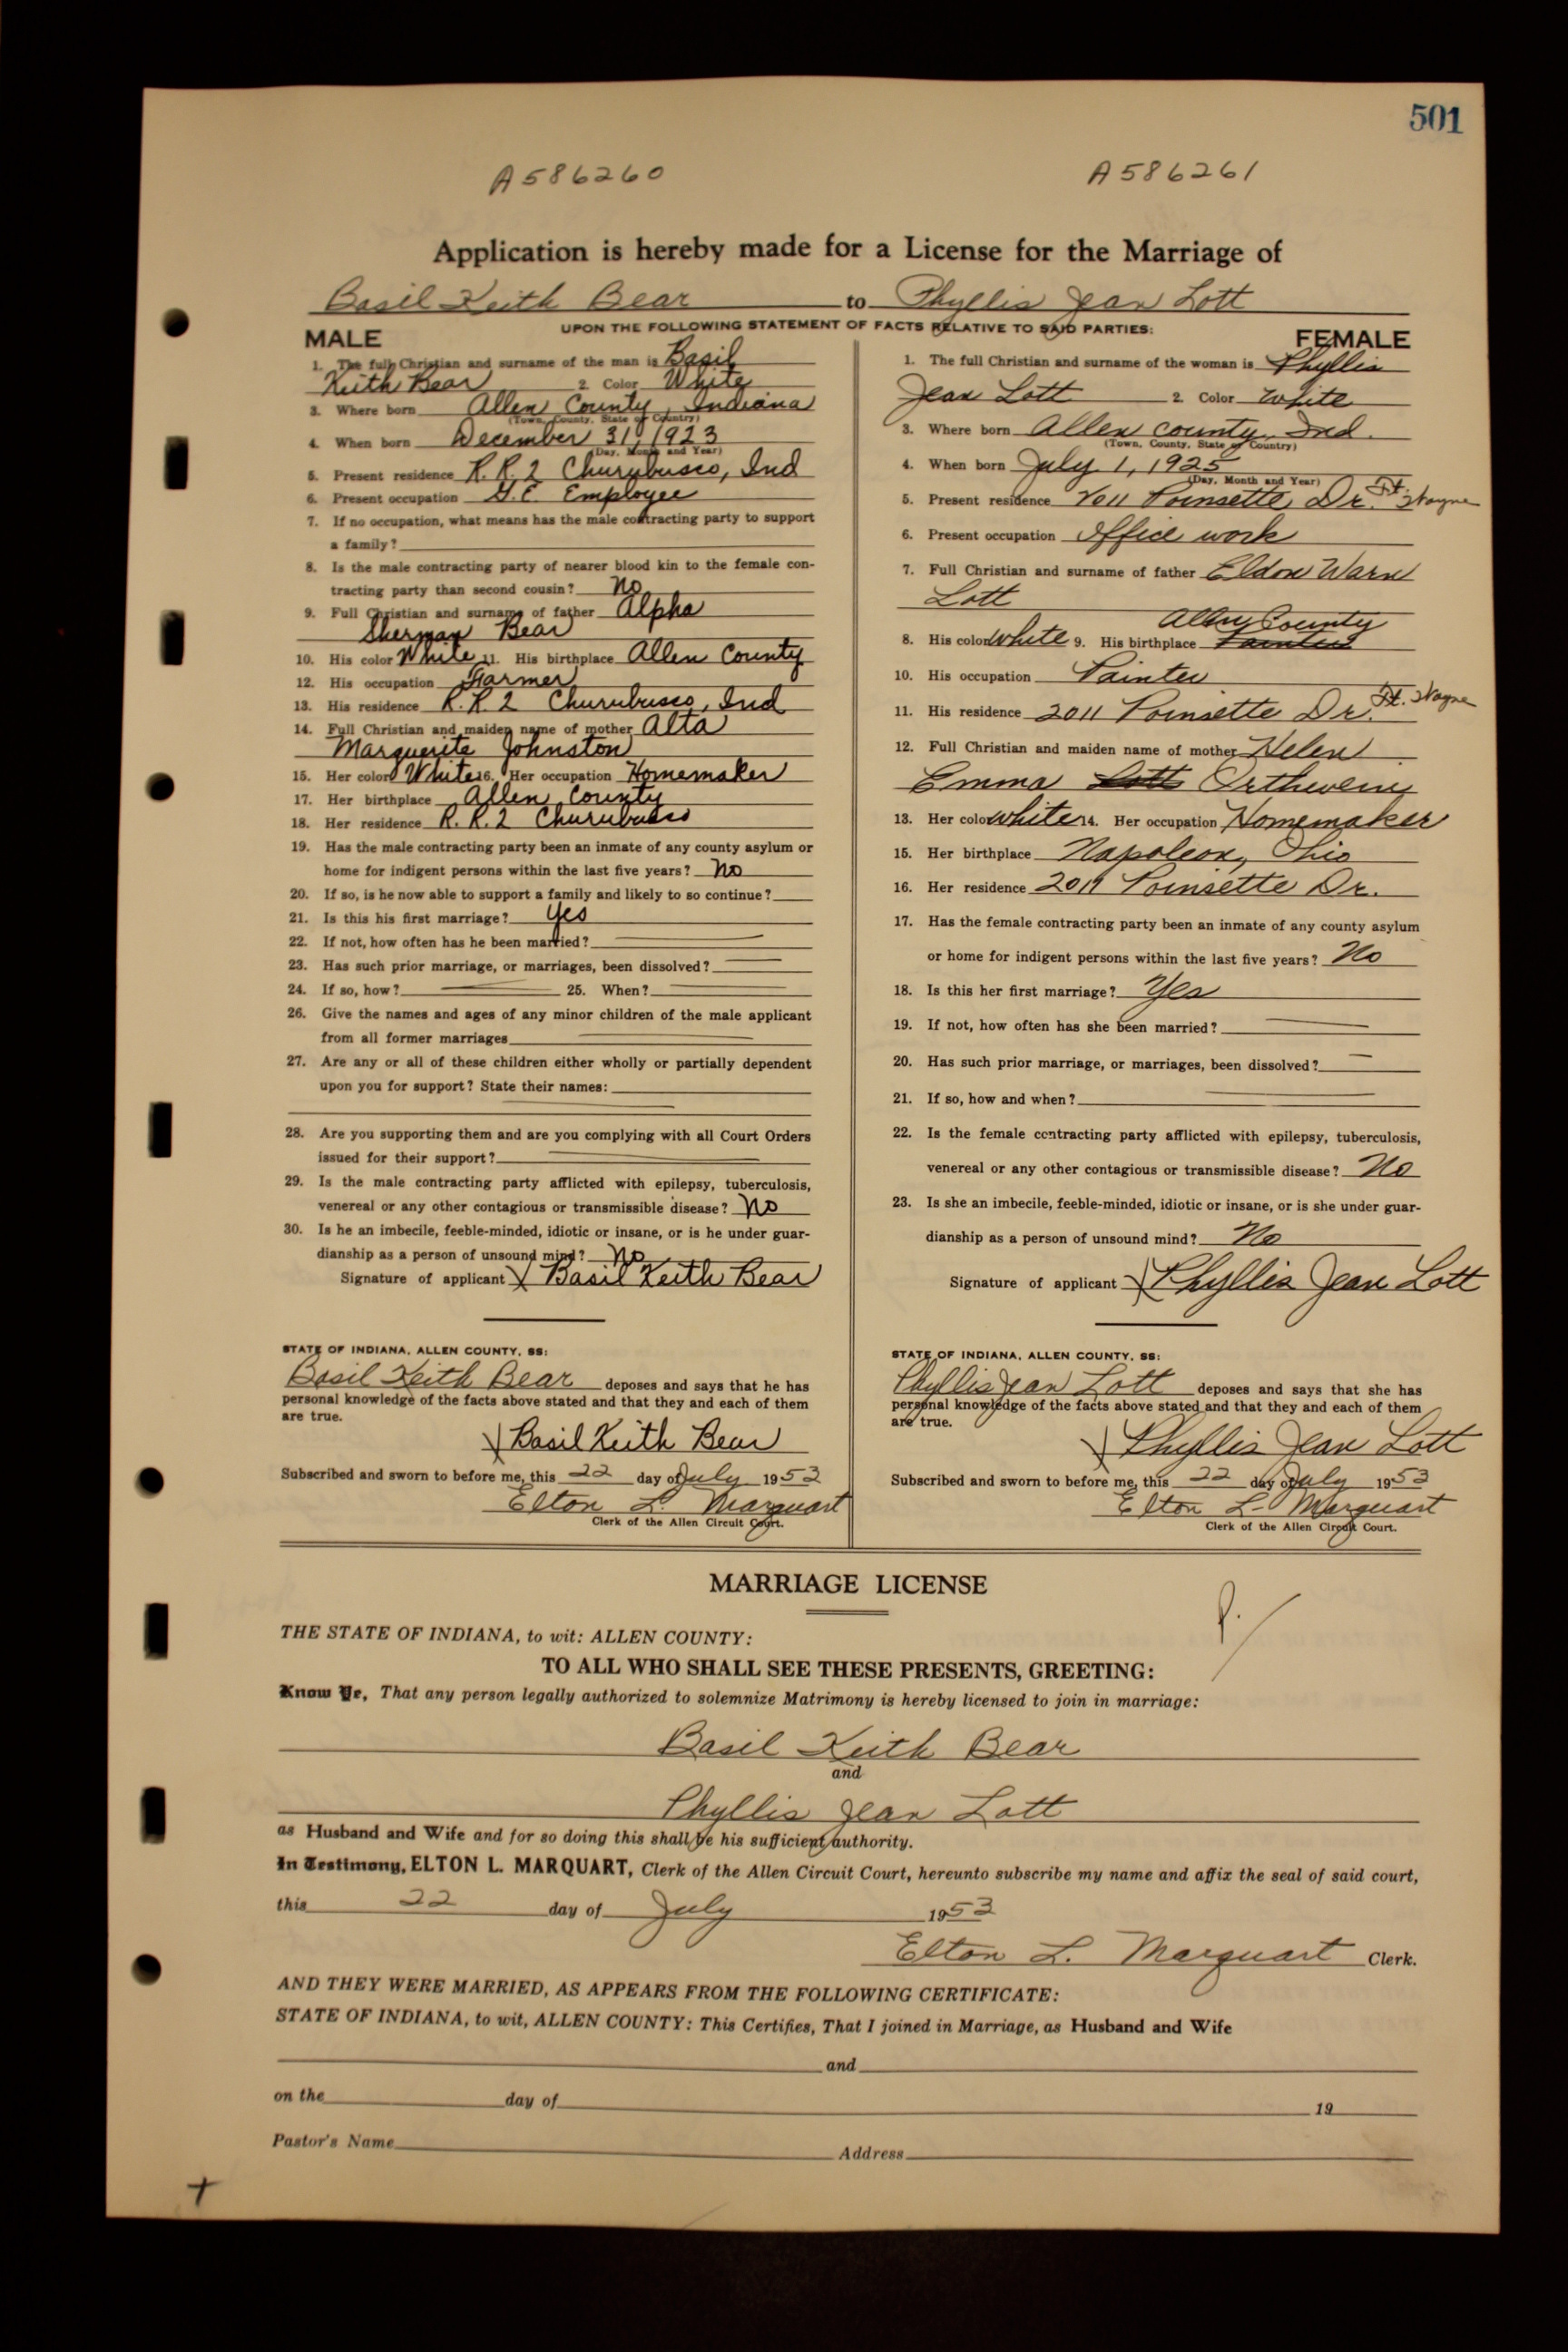 501
A586260 A586261
Application is hereby made for a License for the Marriage of
Basil Keith Bear to Phyllis Jean Lott
UPON THE FOLLOWING STATEMENT OF FACTS RELATIVE TO SAID PARTIES:
MALE
1. The full Christian and surname of the man is Basil
Keith Bear 2. Color White
3. Where born Allen County, Indiana
(Town, County, State or Country)
4. When born December 31, 1923
(Day, Month and Year)
5. Present residence R.R. 2 Churubusco, Ind
6. Present occupation G.E. Employee
7. If no occupation, what means has the male contracting party to support
a family?
8. Is the male contracting party of nearer blood kin to the female con-
tracting party than second cousin? No
9. Full Christian and surname of father Alpha
Sherman Bear
10. His color White 11. His birthplace Allen County
12. His occupation Farmer
13. His residence R.R. 2 Churubusco, Ind
14. Full Christian and maiden name of mother Alta
Marguerite Johnston
15. Her color White 16. Her occupation Homemaker
17. Her birthplace Allen County
18. Her residence R.R. 2 Churubusco
19. Has the male contracting party been an inmate of any county asylum or
home for indigent persons within the last five years? No
20. If so, is he now able to support a family and likely to so continue?
21. Is this his first marriage? Yes
22. If not, how often has he been married?
23. Has such prior marriage, or marriages, been dissolved?
24. If so, how? 25. When?
26. Give the names and ages of any minor children of the male applicant
from all former marriages
27. Are any or all of these children either wholly or partially dependent
upon you for support? State their names:
28. Are you supporting them and are you complying with all Court Orders
issued for their support?
29. Is the male contracting party afflicted with epilepsy, tuberculosis,
venereal or any other contagious or transmissible disease? No
30. Is he an imbecile, feeble-minded, idiotic or insane, or is he under guar-
dianship as a person of unsound mind? No
Signature of applicant X Basil Keith Bear
STATE OF INDIANA, ALLEN COUNTY, SS:
Basil Keith Bear deposes and says that he has
personal knowledge of the facts above stated and that they and each of them
are true.
X Basil Keith Bear
Subscribed and sworn to before me, this 22 day of July 1953
Elton L. Marquart
Clerk of the Allen Circuit Court.
FEMALE
1. The full Christian and surname of the woman is Phyllis
Jean Lott 2. Color White
3. Where born Allen County, Ind.
(Town, County, State or Country)
4. When born July 1, 1925
(Day, Month and Year)
5. Present residence 2011 Poinsette Dr. Ft. Wayne
6. Present occupation Office work
7. Full Christian and surname of father Eldon Warn
Lott
Allen County
8. His color White 9. His birthplace Painter
10. His occupation Painter
11. His residence 2011 Poinsette Dr. Ft. Wayne
12. Full Christian and maiden name of mother Helen
Emma Lott
13. Her color White 14. Her occupation Homemaker
15. Her birthplace Napoleon, Ohio
16. Her residence 2011 Poinsette Dr.
17. Has the female contracting party been an inmate of any county asylum
or home for indigent persons within the last five years? No
18. Is this her first marriage? Yes
19. If not, how often has she been married?
20. Has such prior marriage, or marriages, been dissolved?
21. If so, how and when?
22. Is the female contracting party afflicted with epilepsy, tuberculosis,
venereal or any other contagious or transmissible disease? No
23. Is she an imbecile, feeble-minded, idiotic or insane, or is she under guar-
dianship as a person of unsound mind? No
Signature of applicant X Phyllis Jean Lott
STATE OF INDIANA, ALLEN COUNTY, SS:
Phyllis Jean Lott deposes and says that she has
personal knowledge of the facts above stated and that they and each of them
are true.
X Phyllis Jean Lott
Subscribed and sworn to before me, this 22 day of July 1953
Elton L. Marquart
Clerk of the Allen Circuit Court.
MARRIAGE LICENSE
THE STATE OF INDIANA, to wit: ALLEN COUNTY:
TO ALL WHO SHALL SEE THESE PRESENTS, GREETING:
Know Ye, That any person legally authorized to solemnize Matrimony is hereby licensed to join in marriage:
Basil Keith Bear
and
Phyllis Jean Lott
as Husband and Wife and for so doing this shall be his sufficient authority.
In Testimony, ELTON L. MARQUART, Clerk of the Allen Circuit Court, hereunto subscribe my name and affix the seal of said court,
this 22 day of July 1953
Elton L. Marquart Clerk.
AND THEY WERE MARRIED, AS APPEARS FROM THE FOLLOWING CERTIFICATE:
STATE OF INDIANA, to wit, ALLEN COUNTY: This Certifies, That I joined in Marriage, as Husband and Wife
and
on the day of 19
Pastor's Name Address